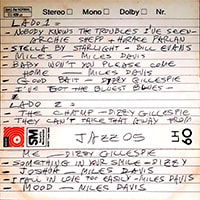 Stereo Mono Dolby Nr.
LADO 1 =
- NOBODY KNOWS THE TROUBLES I'VE SEEN -
ARCHIE SHEPP + HORACE PARLAN
- STELLA BY STARLIGHT - BILL EVANS
- MILES - MILES DAVIS
- BABY WON'T YOU PLEASE COME
HOME - MILES DAVIS
- GOOD BAIT - DIZZY GILLESPIE
- I'VE GOT THE BLUEST BLUES -
LADO 2 =
- THE CHAMP - DIZZY GILLESPIE
- THEY CAN'T TAKE THAT AWAY FROM
JAZZ 05
BASF
LH
60
ME - DIZZY GILLESPIE
- SOMETHING IN YOUR SMILE - DIZZY
- JOSHUA - MILES DAVIS
- I FALL IN LOVE TOO EASILY - MILES DAVIS
- MOOD - MILES DAVIS